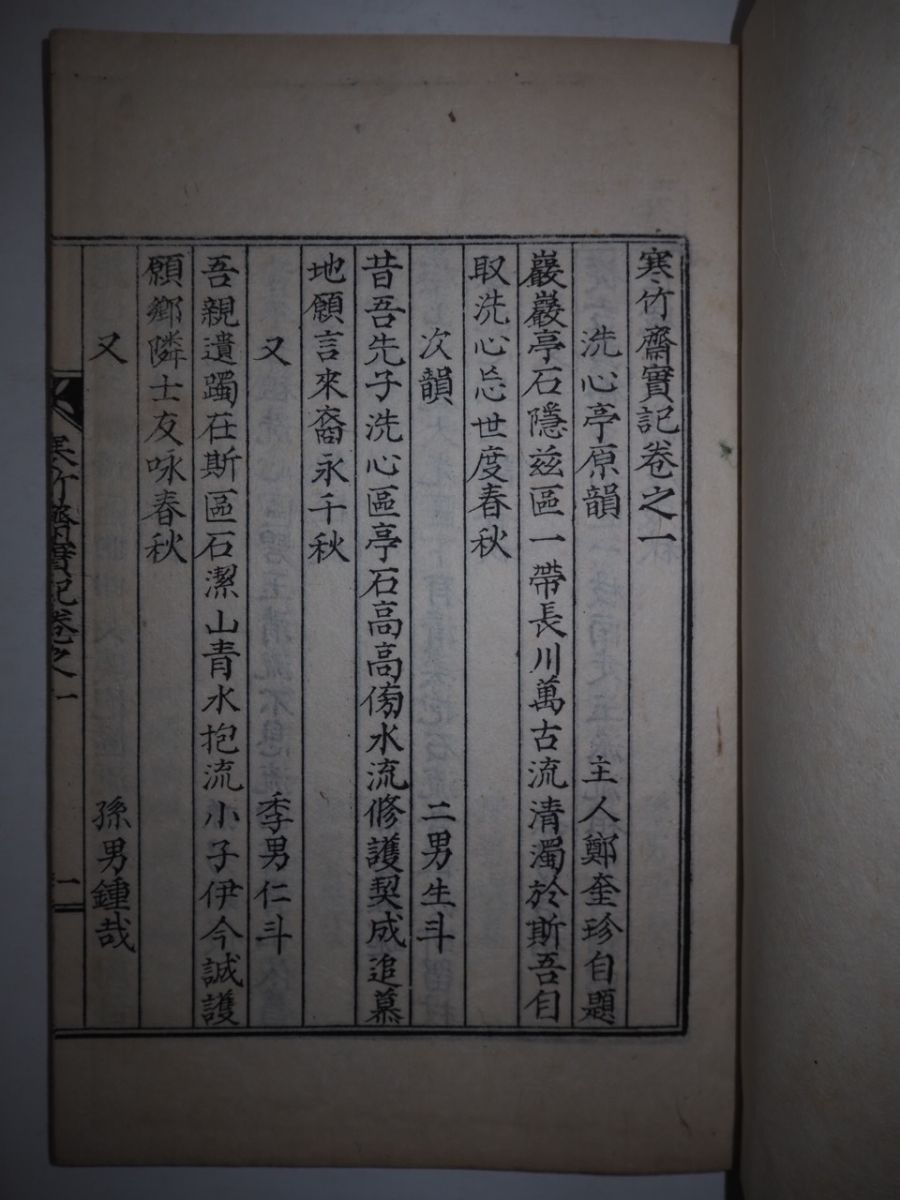 寒竹齋實記卷之一
洗心亭原韻 主人鄭奎珍自題
巖巖亭石隱玆區一帶長川萬古流清濁於斯吾自
取洗心忘世度春秋
次韻 二男生斗
昔吾先子洗心區亭石高高傍水流修護契成追慕
地願言來裔永千秋
又 季男仁斗
吾親遺躅在斯區石潔山青水抱流小子伊今誠護
願鄉隣士友咏春秋
又 孫男鍾哉
寒竹齋實記卷之一
一